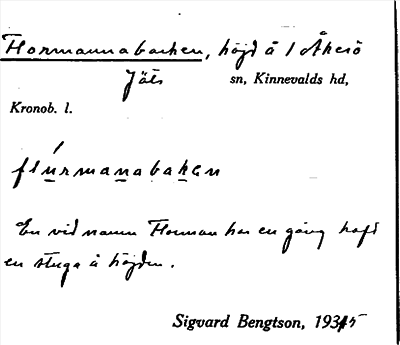 Flormannabacken, höjd å 1 Åkesö
Jäts sn, Kinnevalds hd,
Kronob. l.
flúrmanabaken
En vid namn Florman har en gång haft
en stuga å höjden.
Sigvard Bengtson, 1935